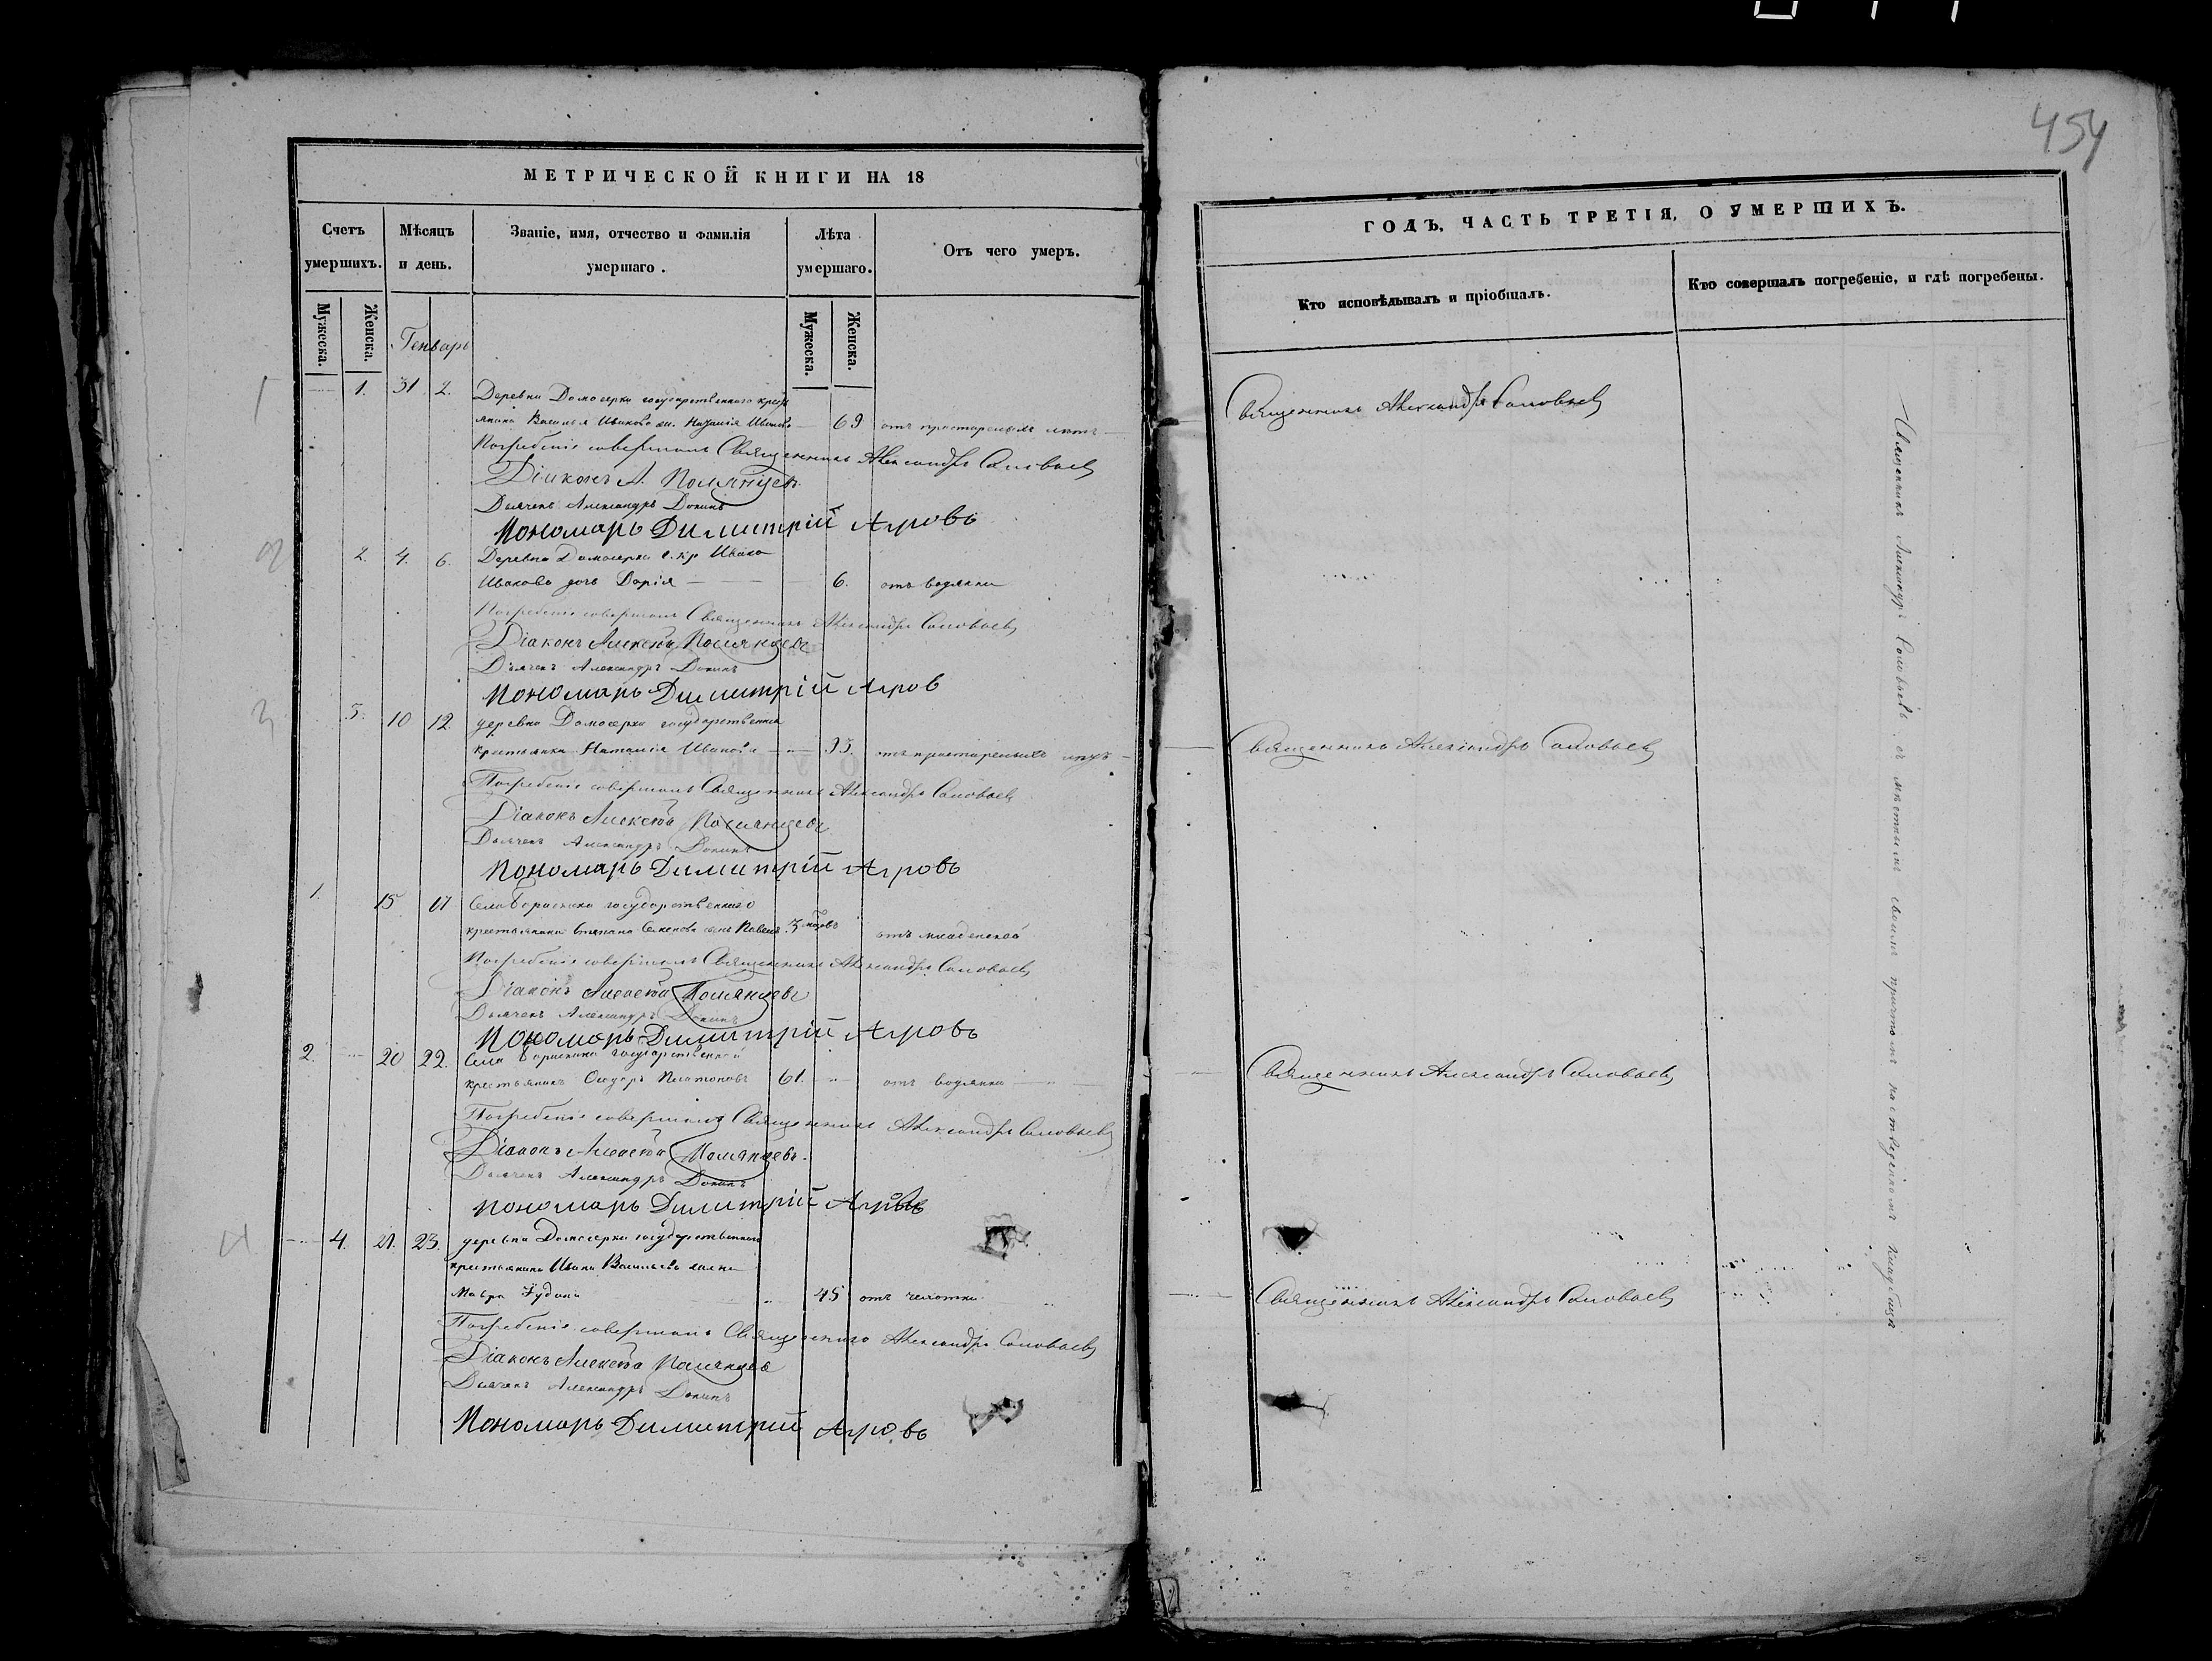 454
МЕТРИЧЕСКОЙ КНИГИ НА 18
Счетъ умершихъ.
Мѣсяцъ и день.
Званіе, имя, отчество и фамилія умершаго.
Лѣта умершаго.
Отъ чего умеръ.
Мужеска.
Женска.
Мужеска.
Женска.
Генварь
1 1. 31 2. Деревни Домосерки государственнаго крест
янина Василья Иванова Наталія Иванова 69 отъ престарелыхъ летъ
Погребеніе совершалъ Священникъ Александръ Соловьевъ
Діаконъ А. Полянцевъ
Дьячекъ Александръ Донинъ
Пономарь Димитрій Агровъ
2 2. 4. 6. Деревни Домосерки Г. Кр Ивана
Иванова дочь Дарія 6. отъ водянки
Погребеніе совершалъ Священникъ Александръ Соловьевъ
Діаконъ Алексѣй Полянцевъ
Дьячекъ Александръ Донинъ
Пономарь Димитрій Агров
3 3. 10 12. деревни Домосерки государственная
крестьянка Наталія Иванова 95. отъ престарелыхъ летъ
Погребеніе совершалъ Священникъ Александръ Соловьевъ
Діаконъ Алексѣй Полянцевъ
Дьячекъ Александръ Донинъ
Пономарь Димитрій Агровъ
1. 15 17 Села Борискина государственнаго
крестьянина Степана Семенова сынъ Павелъ 3 отъ младенской
Погребеніе совершалъ Священникъ Александръ Соловьевъ
Діаконъ Алексѣй Полянцевъ
Дьячекъ Александръ Донинъ
Пономарь Димитрій Агровъ
2. 20 22. Села Борискина государственной
крестьянинъ Сидоръ Платоновъ 61. отъ водянки
Погребеніе совершалъ Священникъ Александръ Соловьевъ
Діаконъ Алексѣй Полянцевъ.
Дьячекъ Александръ Донинъ
Пономарь Димитрій Агровъ
4 4. 21. 23. деревни Домосерки государственнаго
крестьянина Ивана Васильева жена
Мавра 45 отъ чахотки
Погребеніе совершалъ Священникъ Александръ Соловьевъ
Діаконъ Алексѣй Полянцевъ
Дьячекъ Александръ Донинъ
Пономарь Димитрій Агровъ
ГОДЪ, ЧАСТЬ ТРЕТІЯ, О УМЕРШИХЪ.
Кто исповѣдывалъ и пріобщалъ.
Кто совершалъ погребеніе, и гдѣ погребены.
Священникъ Александръ Соловьевъ
Священникъ Александръ Соловьевъ
Священникъ Александръ Соловьевъ
Священникъ Александръ Соловьевъ
Священникъ Александръ Соловьевъ съ мѣстнымъ своимъ причтомъ на отведенномъ кладбищѣ